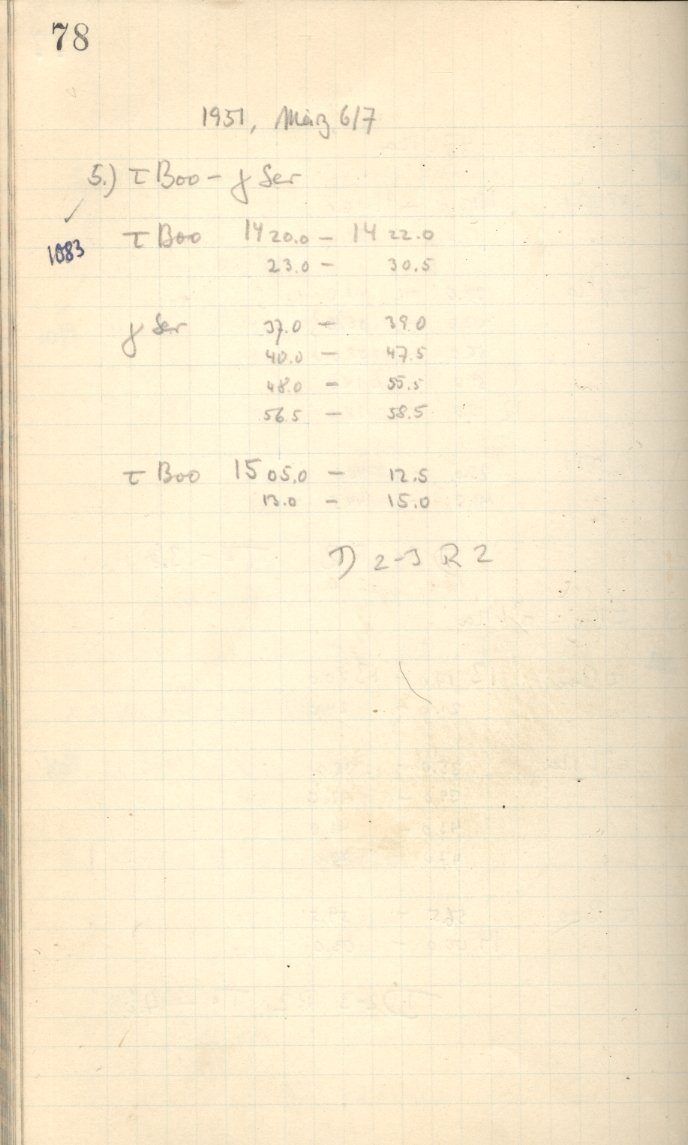 78
1951, März 6/7
5.) τ Boo - γ Ser
✓
1083
τ Boo 14 20.0 - 14 22.0
23.0 - 30.5
γ Ser 37.0 - 39.0
40.0 - 47.5
48.0 - 55.5
56.5 - 58.5
τ Boo 15 05.0 - 12.5
13.0 - 15.0
D 2-3 R 2